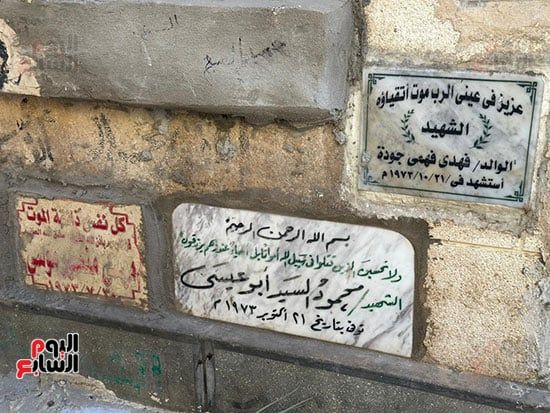 عزيز في عيني الرب موت أتقياؤه
الشهيد
الوالد/ فهدى فهمى جودة
أستشهد فى/ ١٩٧٣/١٠/٢١م
بسم الله الرحمن الرحيم
ولا تحسبن الذين قتلوا فى سبيل الله أمواتا بل أحياء عند ربهم يرزقون
الشهيد/ محمود السيد أبو عيسى
توفى بتاريخ ٢١ أكتوبر ١٩٧٣ م
كل نفس ذائقة الموت
اليوم السابع